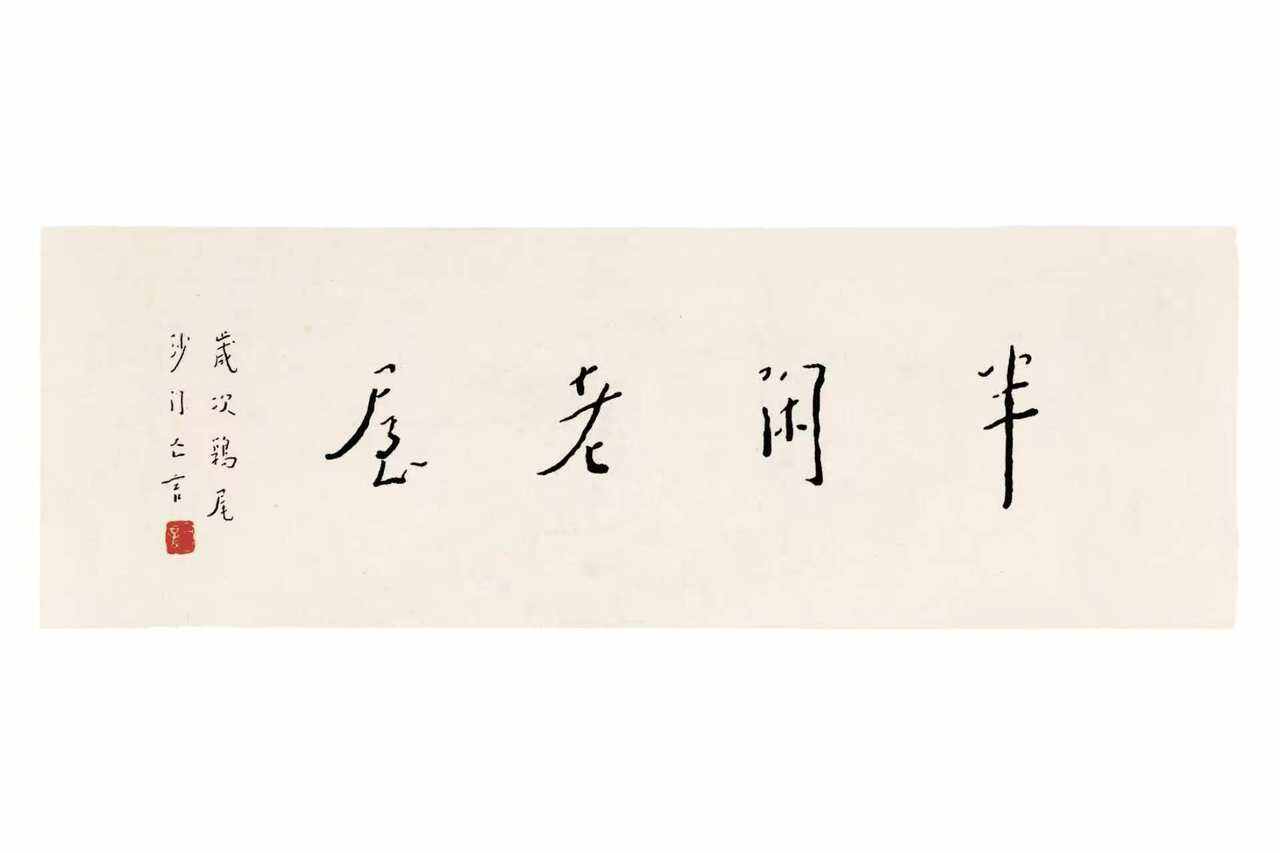 半閑老屋
歲次鶉尾
沙門亾言